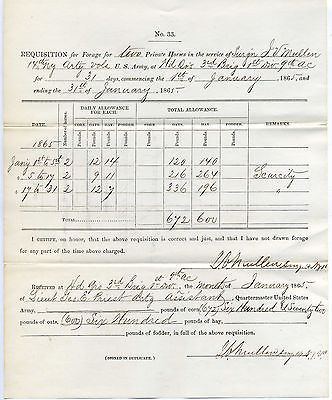 No. 33.
REQUISITION for Forage for two Private Horses in the service of Surgn J. V. Mullen
14th Ny Arty vols U. S. Army, at Hd Qrs 3rd Brig 1st Div 9th AC
for 31 days, commencing the 1st of January, 1865, and
ending the 31st of January, 1865.
DATE. Number of Horses. DAILY ALLOWANCE FOR EACH. TOTAL ALLOWANCE. REMARKS
CORN. OATS. HAY. FODDER. CORN. OATS. HAY. FODDER.
1865
Jany 1st to 5th 2 12 14 120 140
" 5 to 17 2 9 11 216 264 Scarcity
" 17 to 31 2 12 7 336 196 "
TOTAL, 672 600
I CERTIFY, on honor, that the above requisition is correct and just, and that I have not drawn forage
for any part of the time above charged.
RECEIVED at Hd Qrs 3rd Brig 1st Div 9th AC the month of January 1865,
of Lieut Assistant Quartermaster United States
Army, pounds of corn, (672) Six Hundred & Seventy two
pounds of oats, (600) Six Hundred pounds of hay,
pounds of fodder, in full of the above requisition.
(SIGNED IN DUPLICATE.)